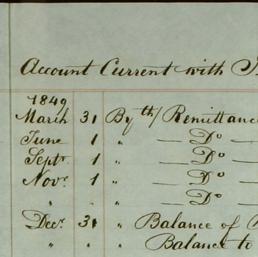 Account Current with
1849
March 31 By th/ Remittance
June 1 " — Do —
Septr 1 " — Do —
Novr 1 " — Do —
" " " — Do —
Decr 31 " Balance of
" " " Balance to